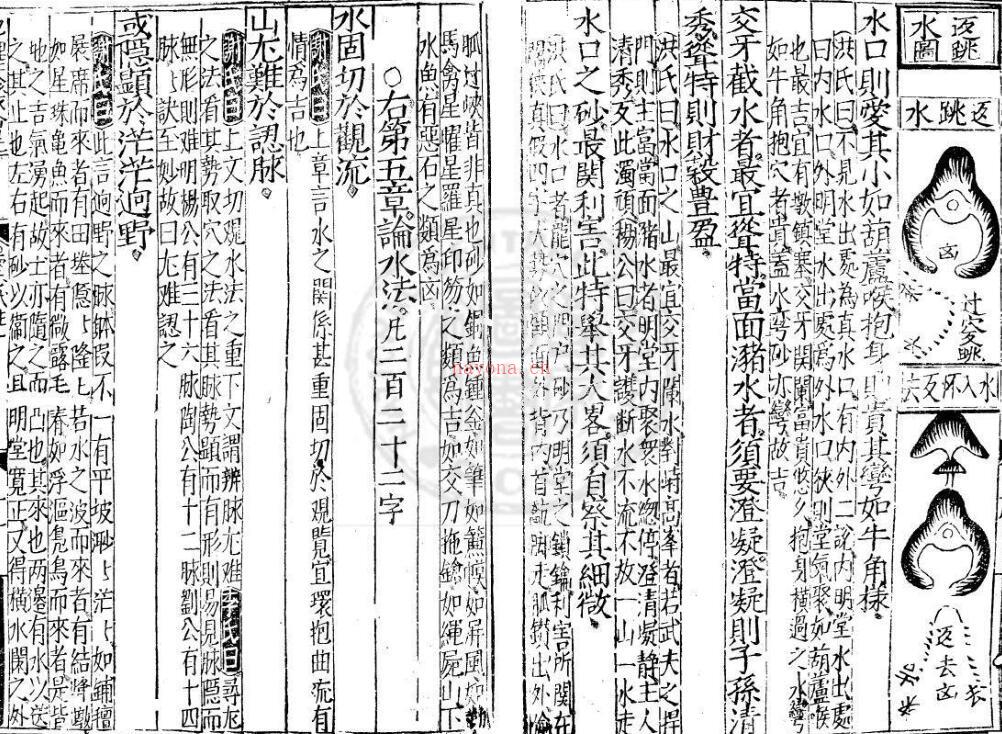 返跳水圖
返跳水
凶
过穴跳
水入怀反去
返去凶
水口則愛其小如葫蘆喉抱身則貴其彎如牛角樣
洪氏曰不見水出處為真水口有內外二說內明堂水出處
曰內水口外明堂水出處為外水口狹則堂氣聚如葫蘆喉
也最吉宜有墩鎮塞交牙関闌富貴悠久抱身橫過之水彎
如牛角抱穴者貴蓋水彎砂亦彎故吉
交牙截水者最宜聳特當面瀦水者須要澄凝澄凝則子孫清
秀聳特則財穀豊盈
洪氏曰水口之山最宜交牙闌水對峙高峯者若武夫之捍
門則主富當面瀦水者明堂內聚衆水緫停澄清凝静主人
清秀反此濁頑楊公曰交牙断水不流不放一山一水走
水口之砂最関利害此特舉其大畧須自察其細微
洪氏曰水口者龍穴之門户砂乃明堂之鎖鑰利害所関在
真假四字大要欲顧面外背內首脚走胍鑚出外論
胍过峽皆非真也砂如銅魚鍾金如筆如簾幙如屏風如
馬禽星曜星羅星印笏之類為吉如交刀拖鎗如繩屍山下
水魚有惡石之類為凶
○右第五章論水法凡二百二十二字
水固切於觀流
劉氏曰上章言水之関係甚重固切於观覽宜環抱曲流有
情為吉也
山尤難於認脉
劉氏曰上文切观水法之重下文謂辨脉尤难李氏曰尋龙
之法看其勢取穴之法看其脉勢顯而有形則易見脉隱而
無形則难明楊公有三十六脉陶公有十二脉劉公有十四
脉卜訣至妙故曰尤难認之
或隱顯於茫茫迥野
劉氏曰此言迥野之脉鉢叚不一有平坡卜茫卜如鋪擅
展席而來者有田塍隐卜隆卜若水之波而來者有結峰墩
如星珠亀魚而來者有微露毛脊如浮漚凫鳥而來者是皆
地之吉氣湧起故土亦隨之而凸也其來也两邉有水以送
之其止也左右有砂以衛之且明堂寬正又得橫水闌之外
nayona.cn